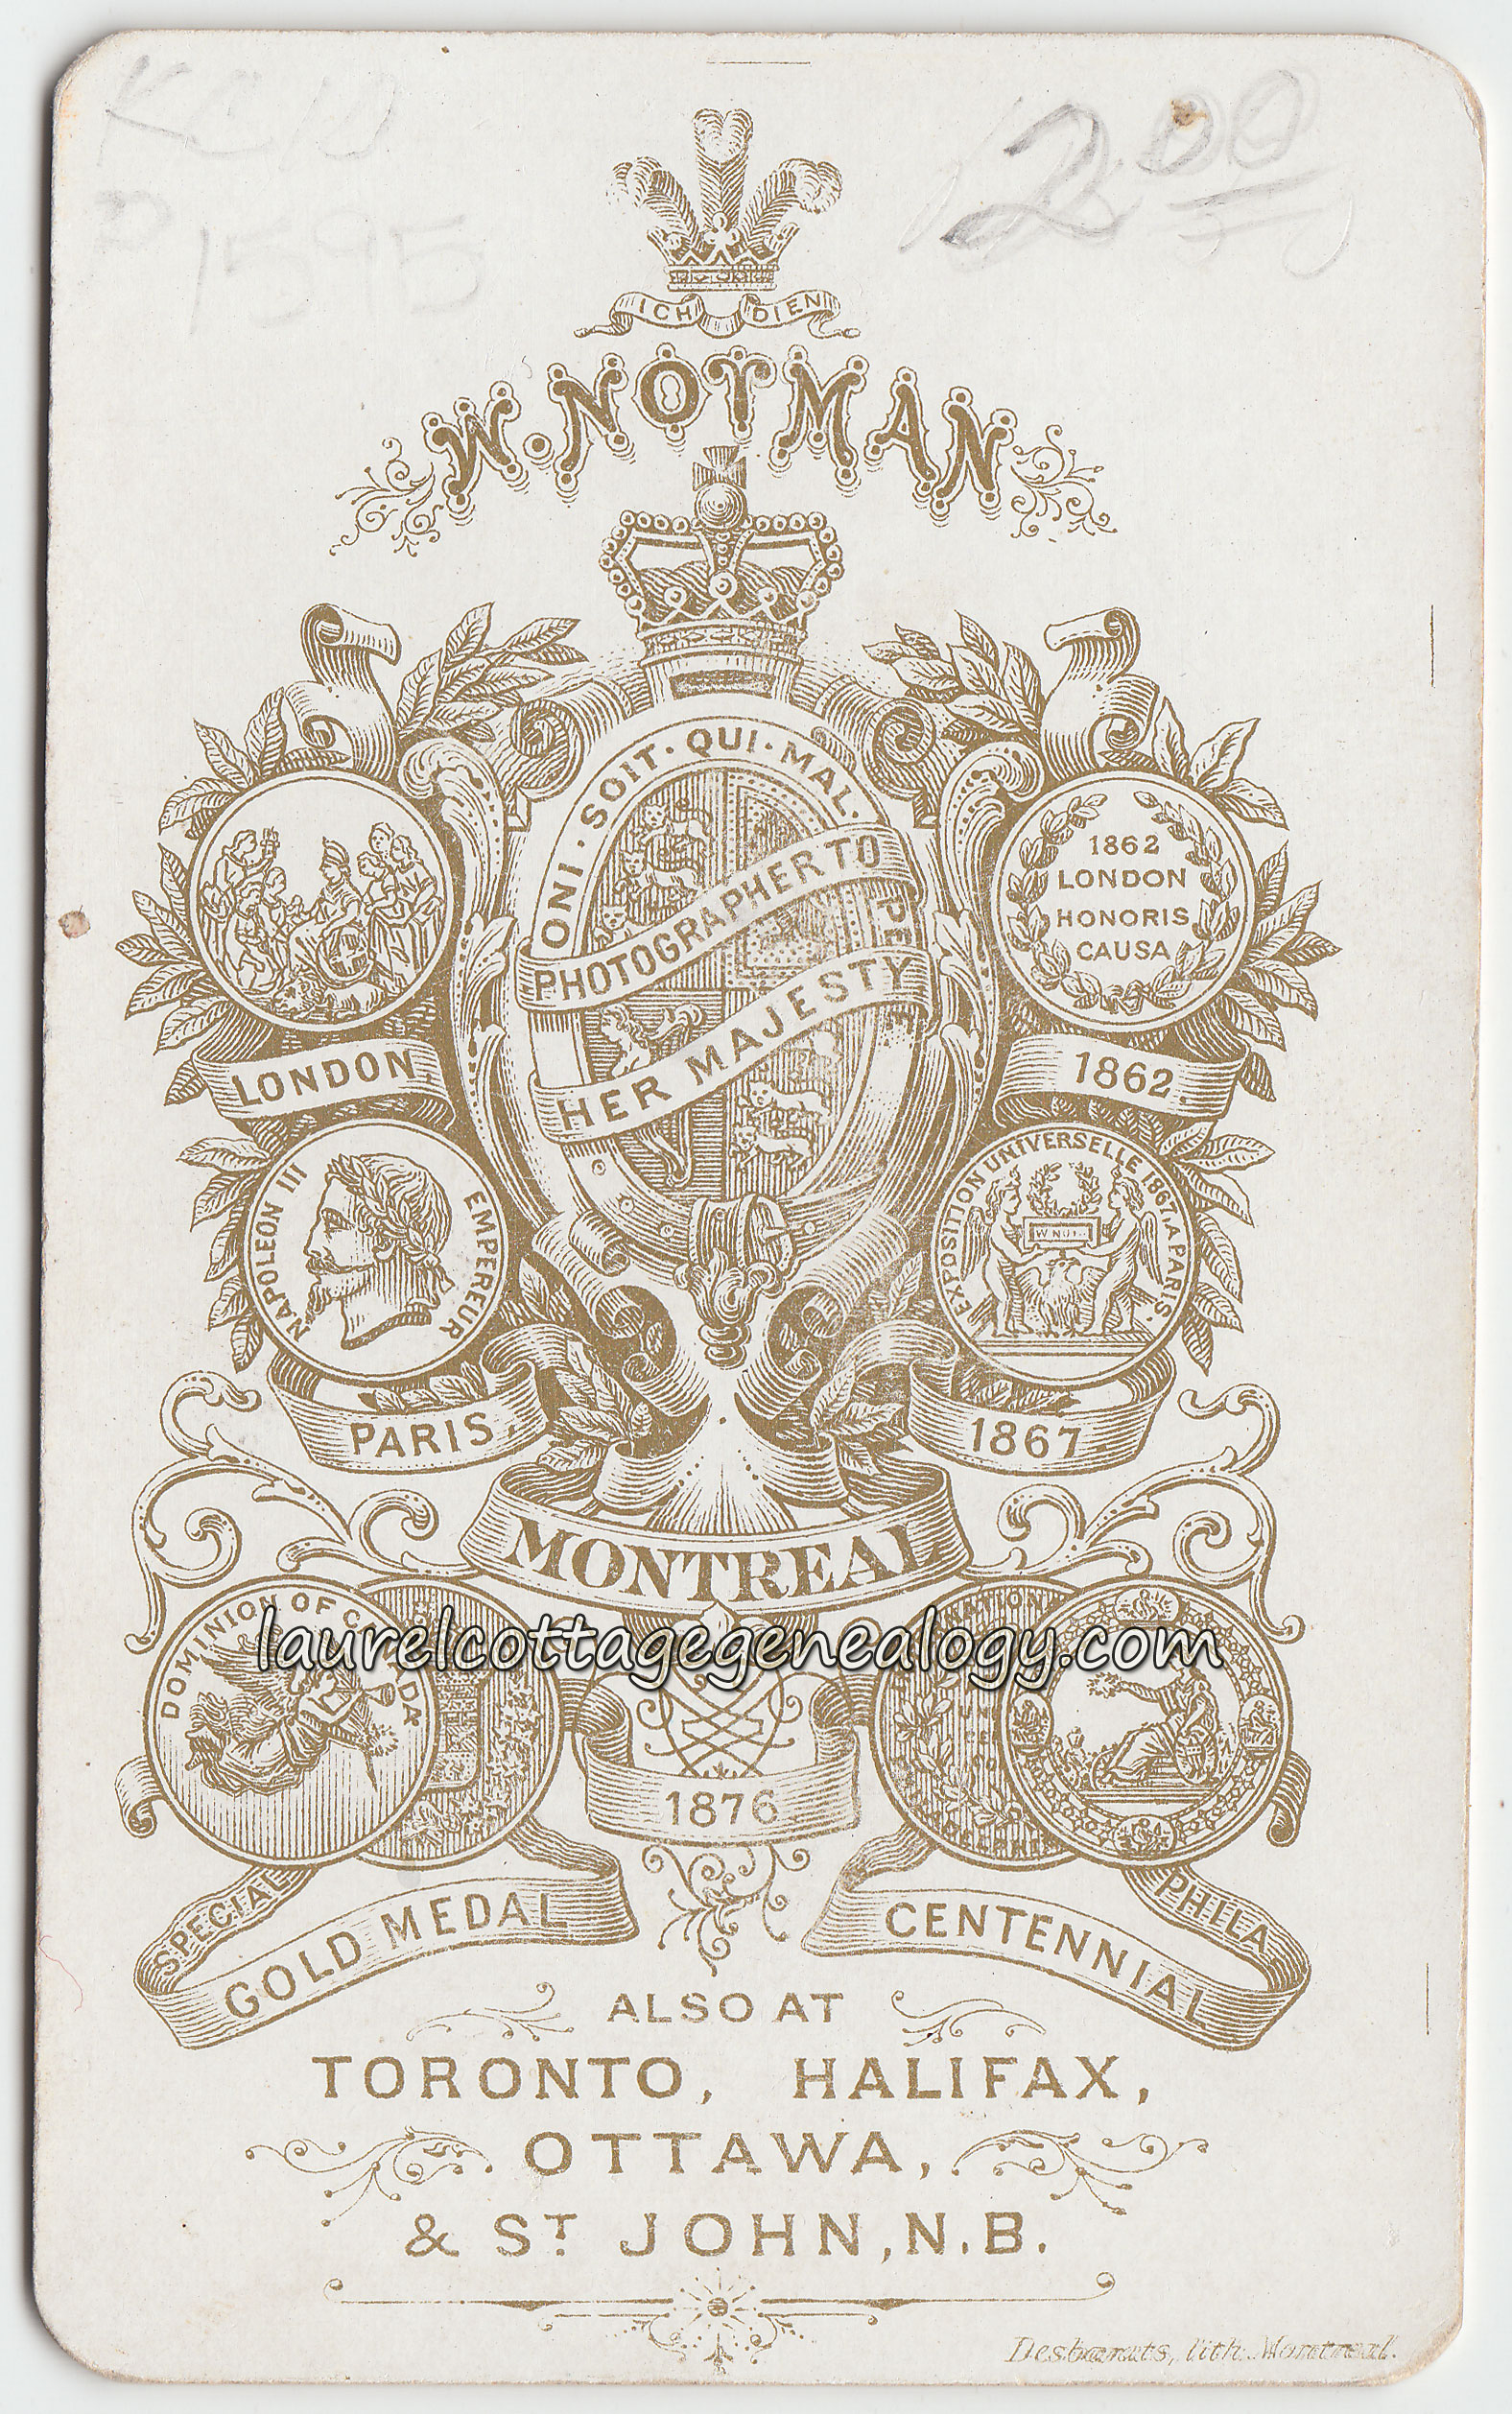 KCW
1595
12.00
ICH DIEN
W. NOTMAN
ONI · SOIT · QUI · MAL ·
PE
PHOTOGRAPHER TO
HER MAJESTY
1862
LONDON
HONORIS
CAUSA
LONDON,
1862
NAPOLEON III EMPEREUR
EXPOSITION UNIVERSELLE 1867, A PARIS.
W NOT
PARIS,
1867
MONTREAL
DOMINION OF CANADA
laurelcottagegenealogy.com
1876
SPECIAL
GOLD MEDAL
CENTENNIAL
PHILA
ALSO AT
TORONTO, HALIFAX,
OTTAWA,
& ST JOHN, N.B.
Desbarats, lith. Montreal.